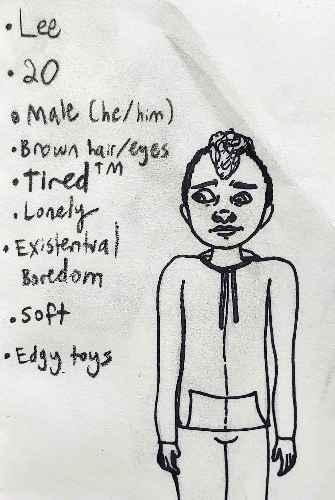 • Lee
• 20
• Male (he/him)
• Brown hair/eyes
• Tired™
• Lonely
• Existential
Boredom
• Soft
• Edgy toys